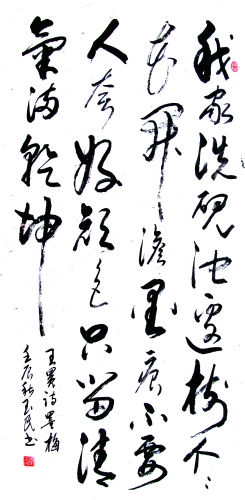 我家洗硯池邊樹个々
花開澹墨痕不要
人夸好顏色只留清
氣滿乾坤
王冕詩墨梅
壬辰秋玉民书